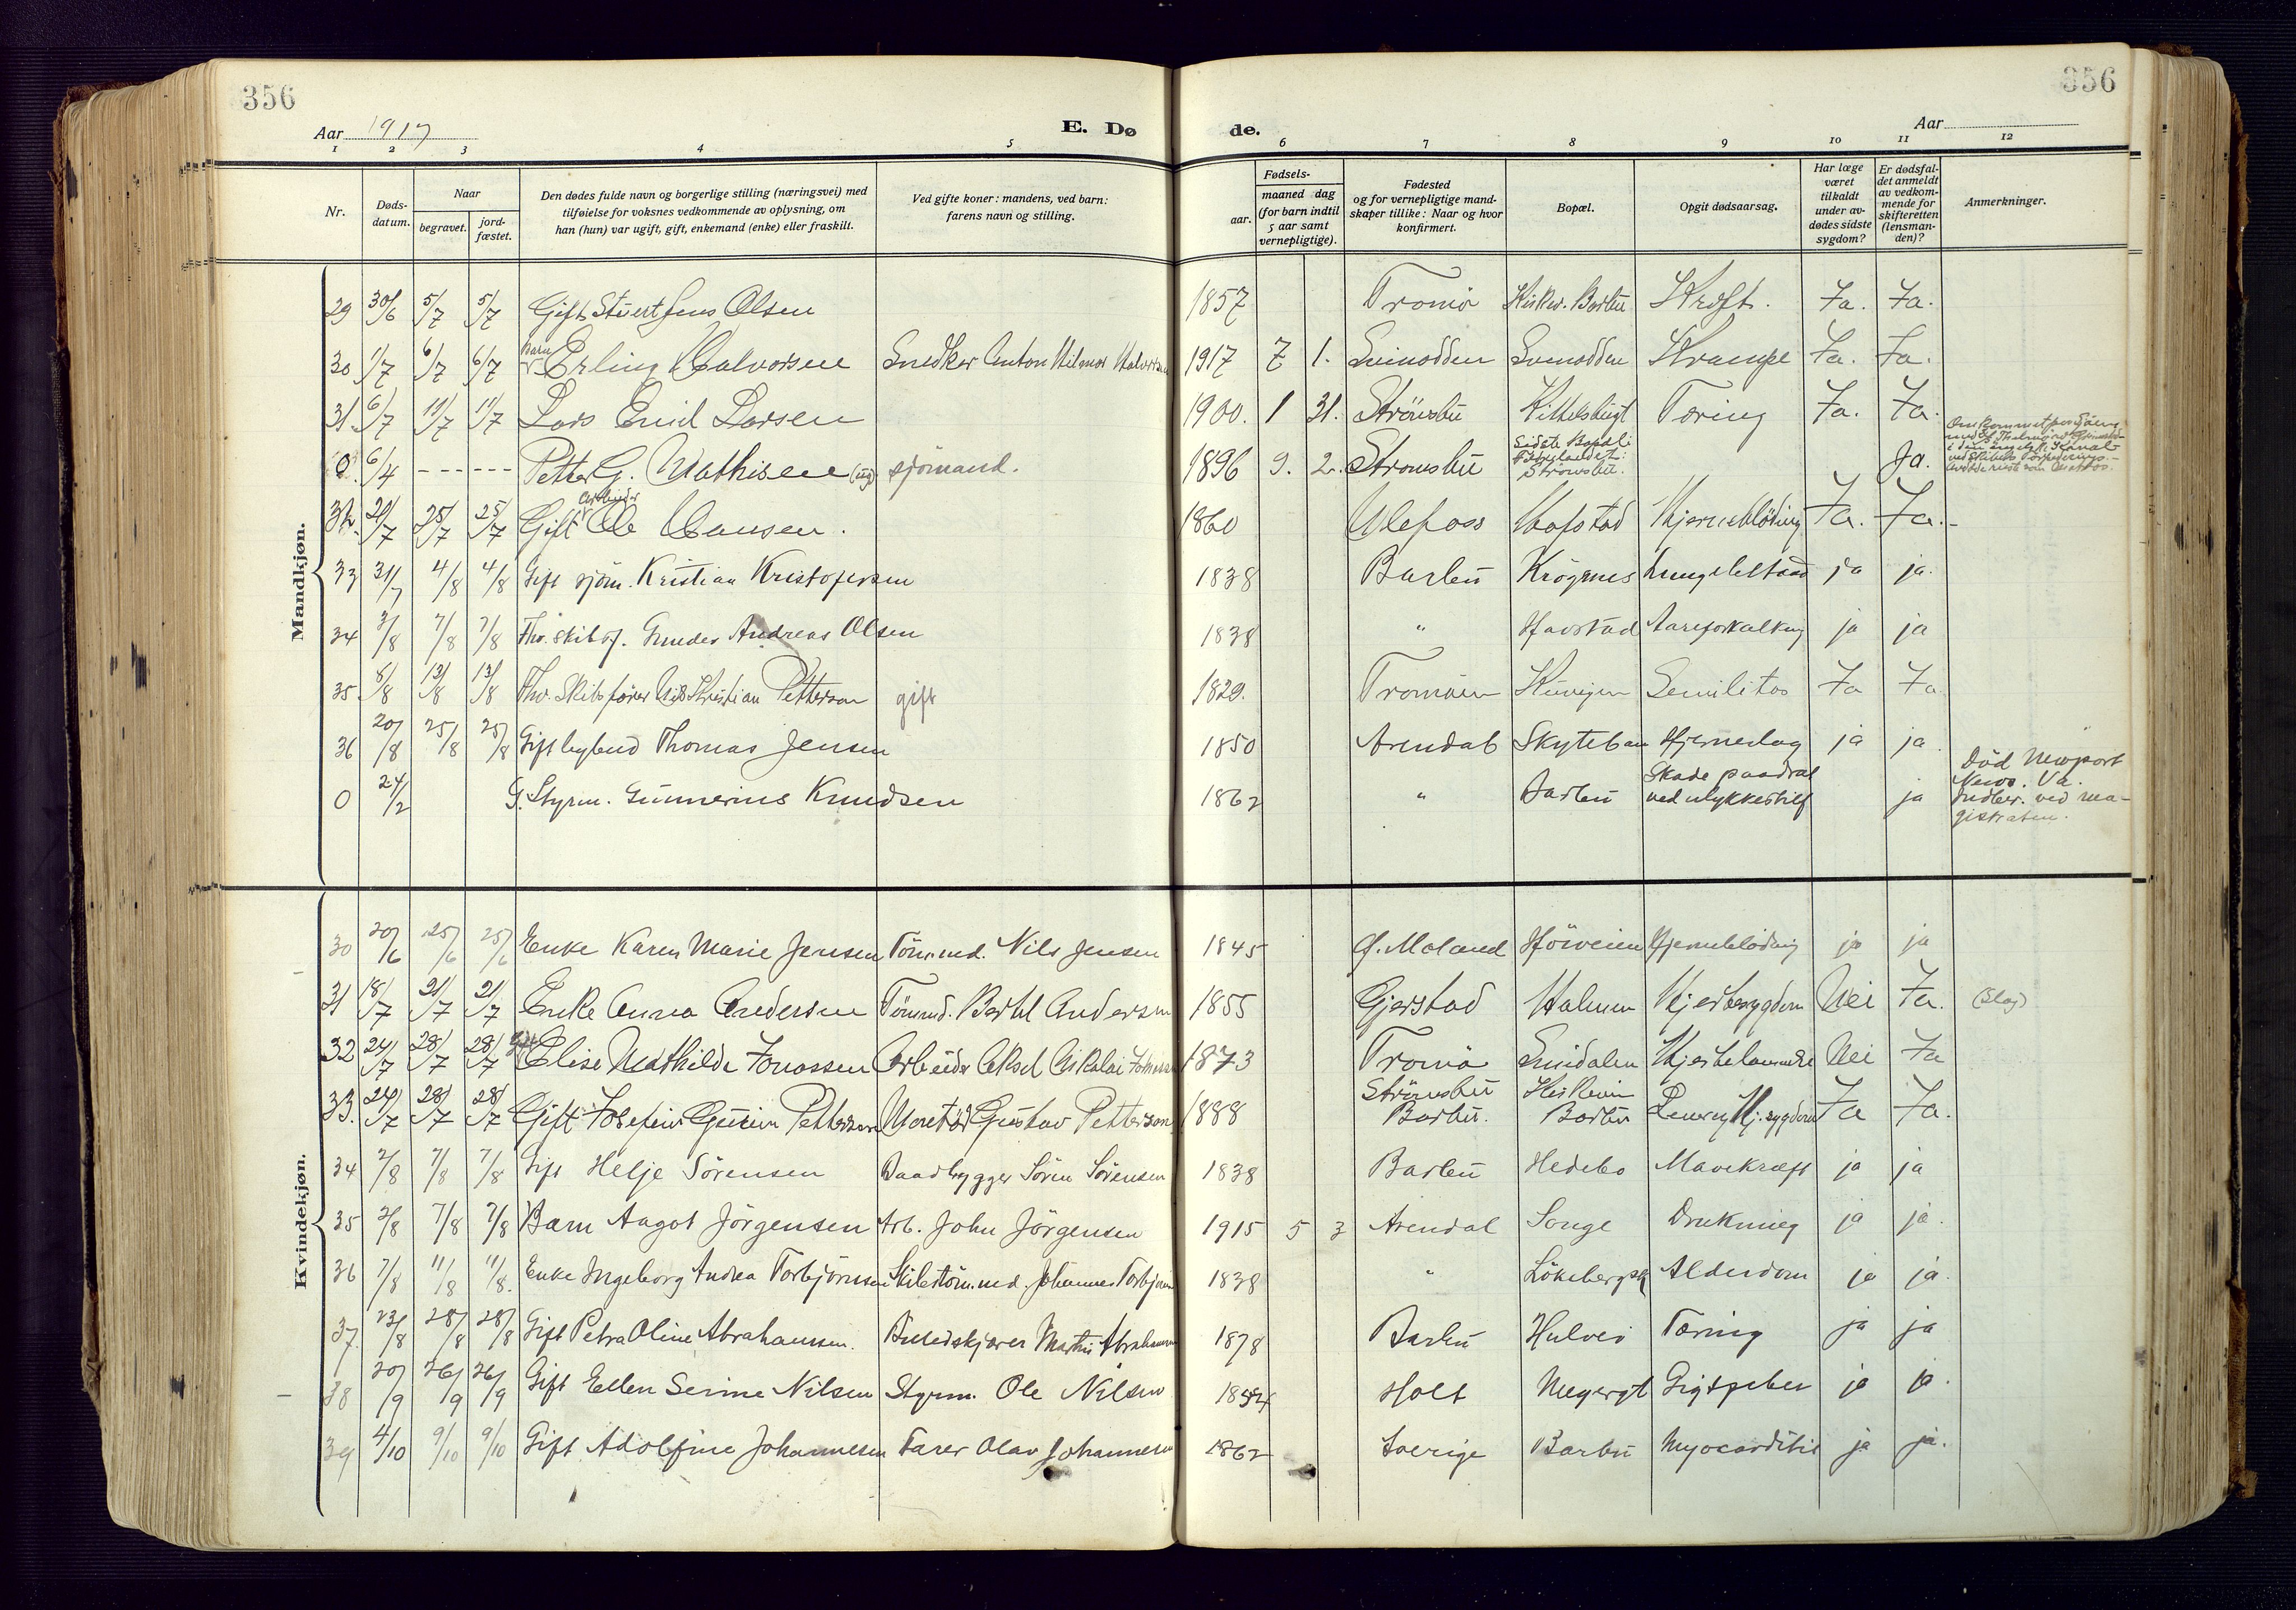 356
356
Aar 1917
E. Dø
de.
Aar
1 2 3 4 5 6 7 8 9 10 11 12
Nr.
Døds-
datum.
Naar
begravet.
jord-
fæstet.
Den dødes fulde navn og borgerlige stilling (næringsvei) med
tilføielse for voksnes vedkommende av oplysning, om
han (hun) var ugift, gift, enkemand (enke) eller fraskilt.
Ved gifte koner: mandens, ved barn:
farens navn og stilling.
Fødsels-
aar.
maaned dag
(for barn indtil
5 aar samt
vernepligtige).
Fødested
og for vernepligtige mand-
skaper tillike: Naar og hvor
konfirmert.
Bopæl.
Opgit dødsaarsag.
Har læge
været
tilkaldt
under av-
dødes sidste
sygdom?
Er dødsfal-
det anmeldt
av vedkom-
mende for
skifteretten
(lensman-
den)?
Anmerkninger.
Mandkjøn.
29 30/6 5/7 5/7 Gift Stuert Jens Olsen 1857 Tromö Barbu Kræft. Ja. Ja.
30 1/7 6/7 6/7 Barn Erling Halvorsen Snedker Anton Hilmar Halvorsen 1917 7 1. Svinodden Svinodden Krampe Ja. Ja.
31 6/7 11/7 11/7 Lars Emil Larsen 1900. 1 31. Strömsbu Kittelsbugt Tæring Ja. Ja.
0. 6/4 - - - - - - Petter G. Mathisen (ug) sjömand. 1896 9. 2. Stromsbu Sidste Bopæl i Strömsbu. Ja. Omkommet
32. 21/7 25/7 25/7 Gift Arbeider Ole Hansen. 1860 Ulefoss Havstad Hjerneblödning Ja. Ja.
33 31/7 4/8 4/8 Gift sjöm. Kristian Kristofersen 1838 Barbu Krögenes Lungebetænd ja ja.
34 3/8 7/8 7/8 Fhv. skibsf. Gunder Andreas Olsen 1838 " Havstad Aareforkalkning ja ja
35 8/8 13/8 13/8 Fhv. Skibsfører Nils Kristian Petterson gift 1829. Tromöen Senilitas Ja Ja
36 20/8 25/8 25/8 Gift Thomas Jensen 1850 Arendal Skyteban Hjerneslag ja ja.
0 24/2 G. Styrm. Gunnerius Knudsen 1862 " Barbu Skade paadrat ved ulykkestilf ja Död Newport
News. Va.
Indber. ved ma-
gistraten.
Kvindekjøn.
30 20/6 25/6 25/6 Enke Karen Marie Jensen Tömmd. Nils Jensen 1845 Ø. Moland Hjerneblödning ja ja
31 18/7 21/7 21/7 Enke Anna Andersen Tömmd. Bertel Andersen 1855 Gjerstad Holmen Hjertesygdom Nei Ja. (Slag)
32 24/7 28/7 28/7 Gift Elise Mathilde Jonassen Arbeider Aksel Nikolai Jonassen 1873 Tromö Hjertelammelse Nei Ja
33. 24/7 28/7 28/7 Gift Josefine Petterson Gustav Petterson 1888 Strömsbu Barbu. Barbu Hj. sygdom Ja Ja.
34 2/8 7/8 7/8 Gift Helje Sörensen Baadbygger Sören Sörensen 1838 Barbu Hedebo Mavekræft ja ja
35 2/8 7/8 7/8 Barn Aagot Jörgensen Arb. John Jörgensen 1915 5 3 Arendal Songe Drukning ja ja.
36 7/8 11/8 11/8. Enke Ingeborg Andrea Torbjörnsen Skibstömmd. Johannes Torbjörns 1838 " Alderdom ja ja.
37. 23/8 28/8 28/8 Gift Petra Oline Abrahamsen. Martin Abrahamsen 1878 Barbu Tæring ja ja
38 20/9 26/9 26/9 Gift Ellen Serine Nilsen Styrm. Ole Nilsen 1854 Holt Gigtfeber ja ja.
39 4/10 9/10 9/10 Gift Adolfine Johannesen Farer Olav Johannesen 1862 Sverige Barbu Myocarditis ja ja.